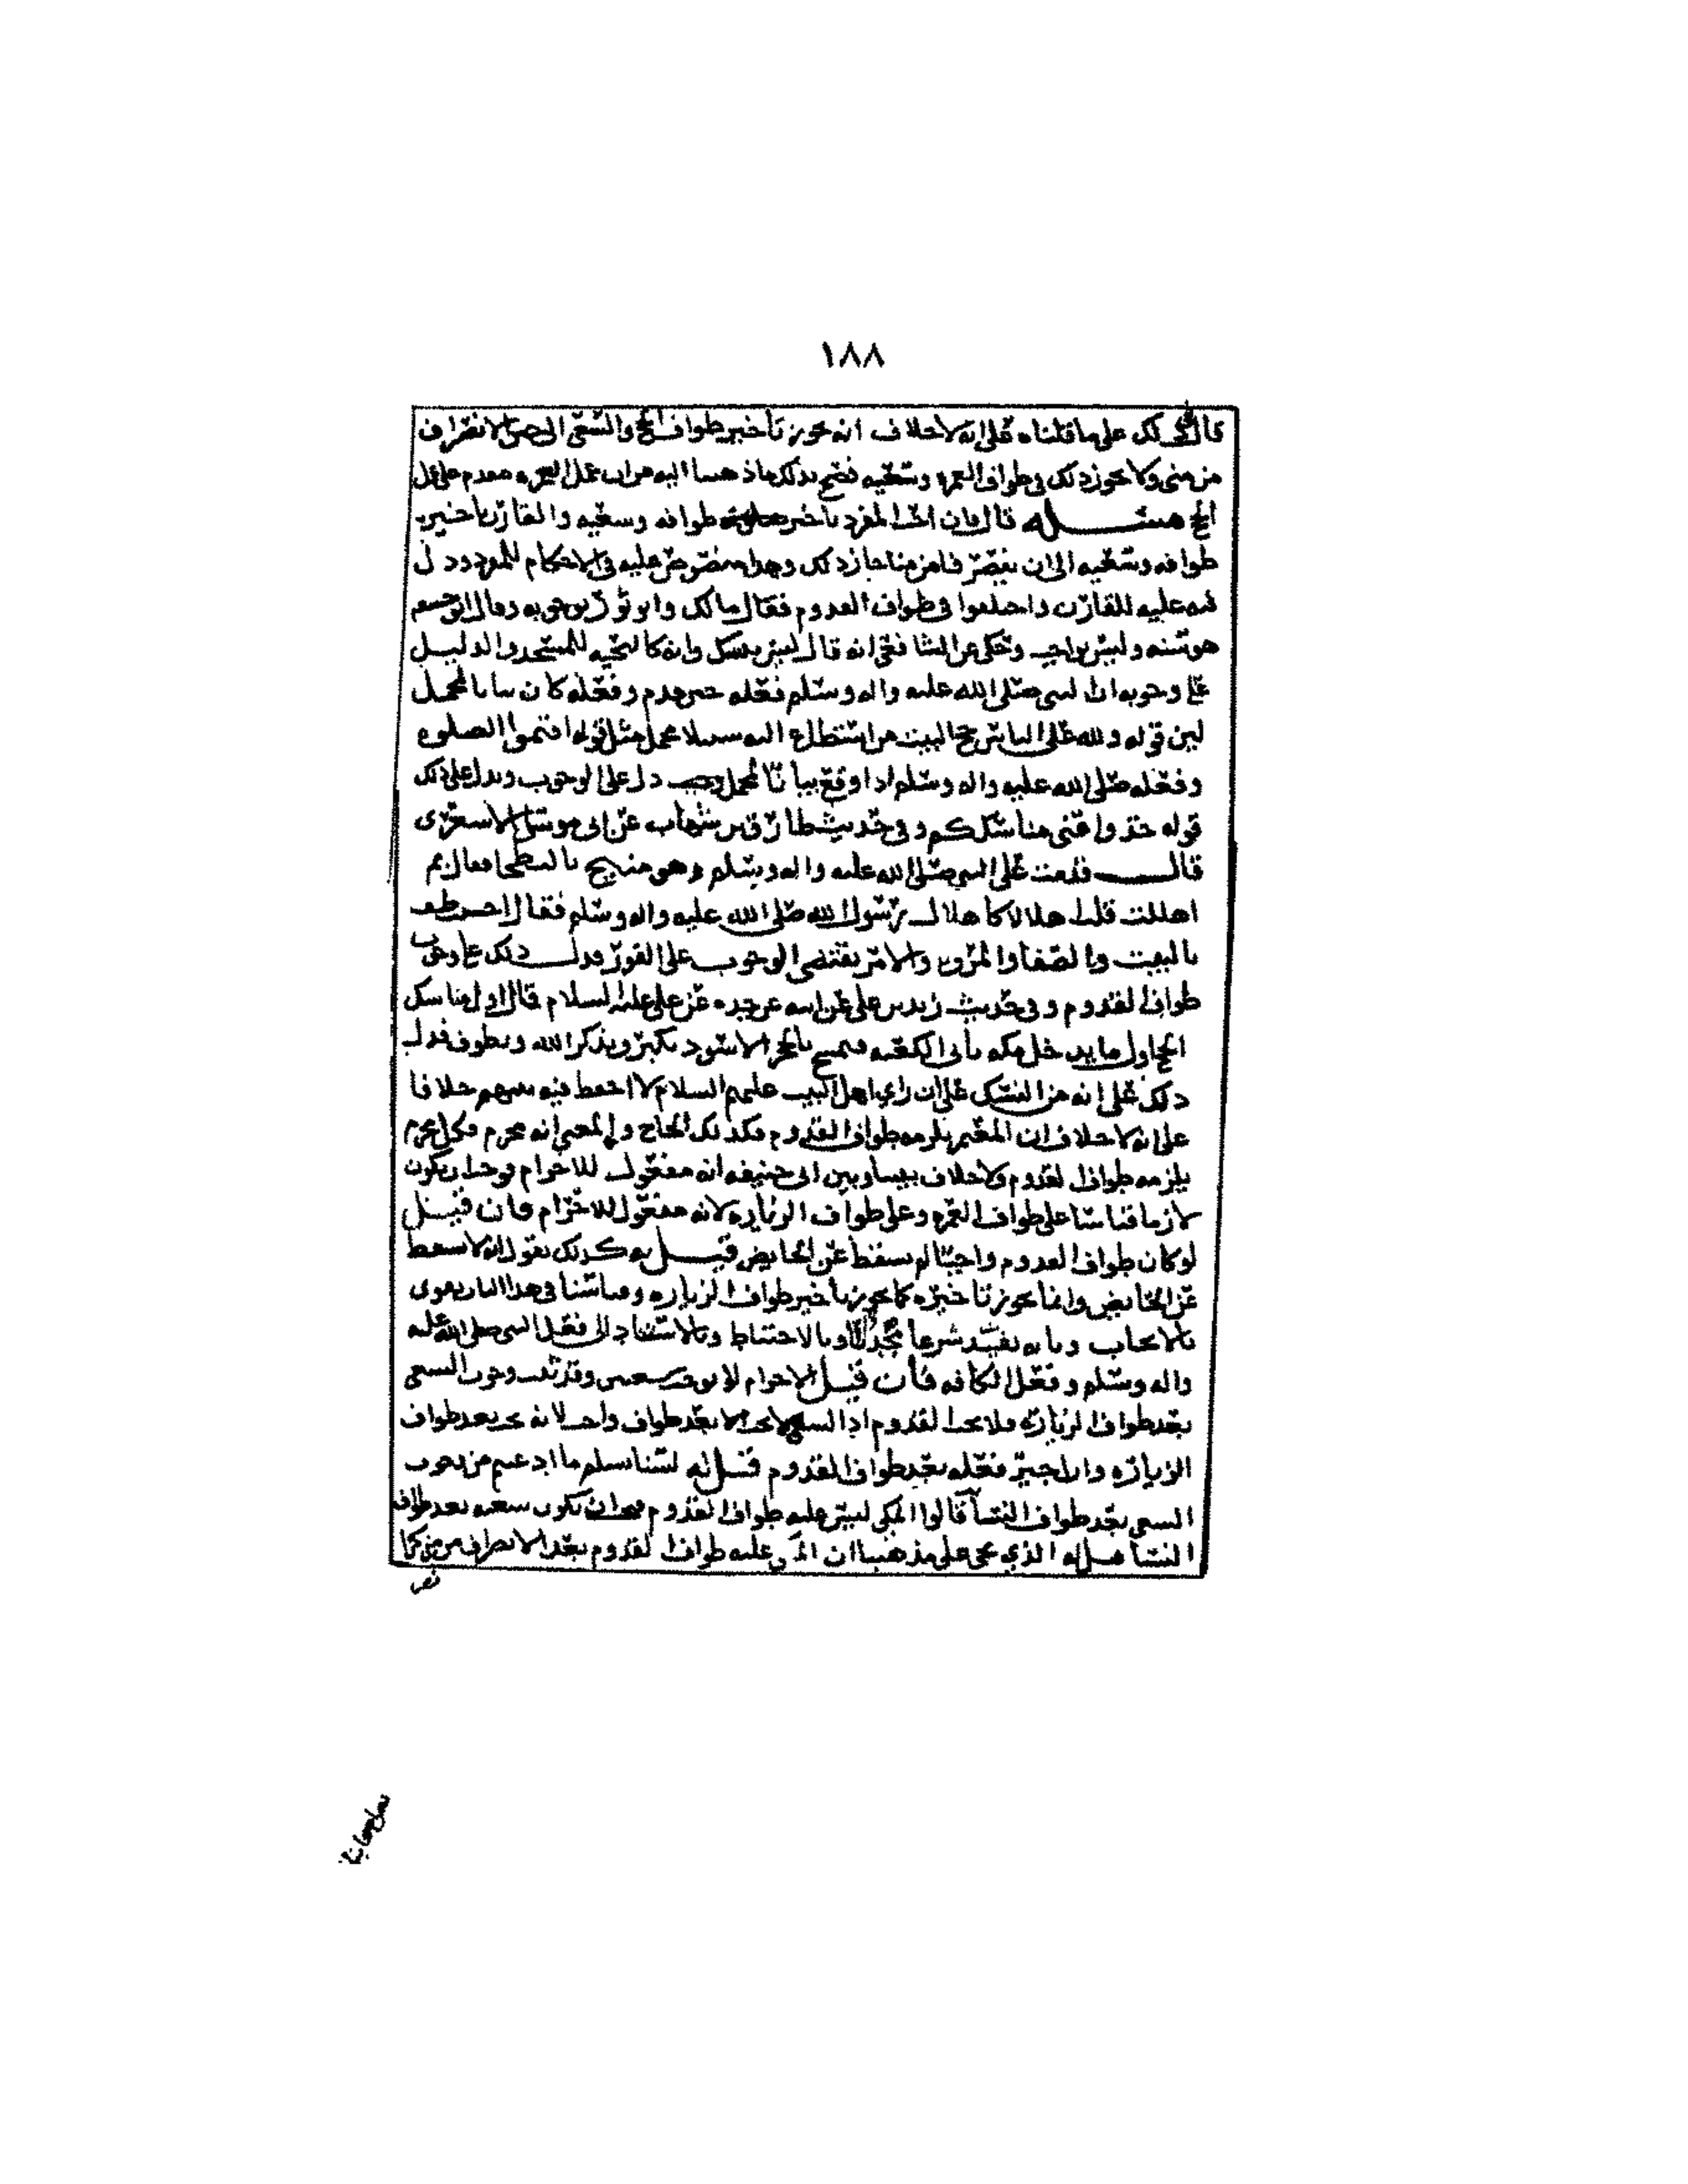 ١٨٨
قال فهي لك على ما قلناه قلنا انه لا خلاف انه يجوز تأخير طواف الحج والسعي الى حين الانصراف
من منى ولا يجوز ذلك في طواف العمرة وسعيه فصح بذلك ما ذهبنا اليه من ان عمل العمرة مقدم على عمل
الحج مسئلة قال فان احب المفرد تأخير طوافه وسعيه والقارن تأخير
طوافه وسعيه الى ان ينصرفا من منا جاز ذلك وهذا منصوص عليه في الاحكام للمفرد ودل
فيه عليه للقارن واختلفوا في طواف القدوم فقال مالك وابو ثور بوجوبه وقال ابو حنيفه
هو سنه وليس بواجب وحكي عن الشافعي انه قال ليس بنسك وانه كالتحيه للمسجد والدليل
على وجوبه ان النبي صلى الله عليه واله وسلم فعله حين قدم وفعله كان بيانا لمجمل
لين قوله ولله على الناس حج البيت من استطاع اليه سبيلا مجمل مثل قوله اقيموا الصلوه
وفعله صلى الله عليه واله وسلم اذا وقع بيانا لمجمل دل على الوجوب ويدل على ذلك
قوله خذوا عني مناسككم وفي حديث طارق بن شهاب عن ابي موسى الاشعري
قال قدمت على النبي صلى الله عليه واله وسلم وهو منيخ بالبطحا فقال بم
اهللت قلت اهلالا كاهلال رسول الله صلى الله عليه واله وسلم فقال احسنت طف
بالبيت وبالصفا والمروه والامر يقتضي الوجوب على الفور فدل ذلك على وجوب
طواف القدوم وفي حديث زيد بن علي عن ابيه عن جده عن علي عليه السلام قال اول مناسك
الحج اول ما يدخل مكه يأتي الكعبه يتمسح بالحجر الاسود يكبر ويذكر الله ويطوف فدل
ذلك على انه من النسك على ان راي اهل البيت عليهم السلام لا احفظ فيه بينهم خلافا
على انه لا خلاف ان المعتمر يلزمه طواف القدوم فكذلك الحاج والمعنى انه محرم فكل محرم
يلزمه طواف القدوم ولا خلاف بيننا وبين ابي حنيفه انه مفعول للاحرام فوجب ان يكون
لازما قياسا على طواف العمره وعلى طواف الزياره لانه مفعول للاحرام فان قيل
لو كان طواف القدوم واجبا لم يسقط عن الحايض قيل له كذلك نقول انه لا يسقط
عن الحايض وانما يجوز تاخيره كما يجوز تاخير طواف الزياره وقياسنا في هذا الباب يقوى
بالايجاب وبانه يفيد شرعا مجددا وبالاحتياط وبالاستناد الى فعل النبي صلى الله عليه
واله وسلم وفعل الكافه فان قيل الاحرام لا يوجب سعيين وقد ثبت وجوب السعي
بعد طواف الزياره فلا يجب القدوم اذ السعي لا يجب الا بعد طواف واحد لانه يجب بعد طواف
الزياره فعله بعد طواف القدوم قيل له لسنا نسلم ما ادعيتم من وجوب
السعي بعد طواف النسآ قالوا المكي ليس عليه طواف القدوم فيجب ان يكون سعيه بعد طواف
النسا قيل له الذي يجي على مذهبنا ان المكي عليه طواف القدوم بعد الانصراف من منى كما
نص